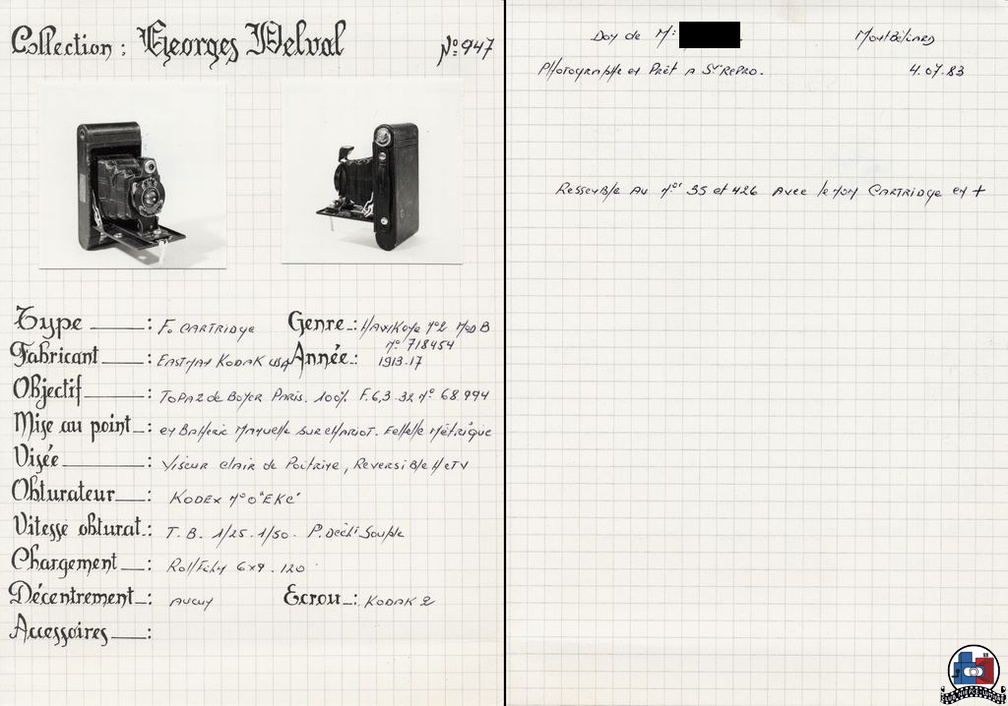 Collection : Georges Delval
N° 947
Type : F. CARTRIDGE
Genre : HAWKEYE N°2 MOD B
N° 718454
Fabricant : EASTMAN KODAK USA
Année : 1913-17
Objectif : TOPAZ de BOYER PARIS. 100%. F.6,3-32 N° 68994
Mise au point : en Batterie Manuelle sur chariot. Echelle Métrique
Visée : Viseur Clair de Poitrine, Reversible H et V
Obturateur : KODEX N°0 "EKC"
Vitesse obturat. : T. B. 1/25. 1/50. P. Décl. Souple
Chargement : Rollfilm 6x9. 120
Décentrement : aucun
Ecrou : KODAK 2
Accessoires :
Don de Mr
Montbéliard
Photographe et Prêt A St
4.07.83
Ressemble Au Nos 35 et 426 Avec le nom CARTRIDGE en +